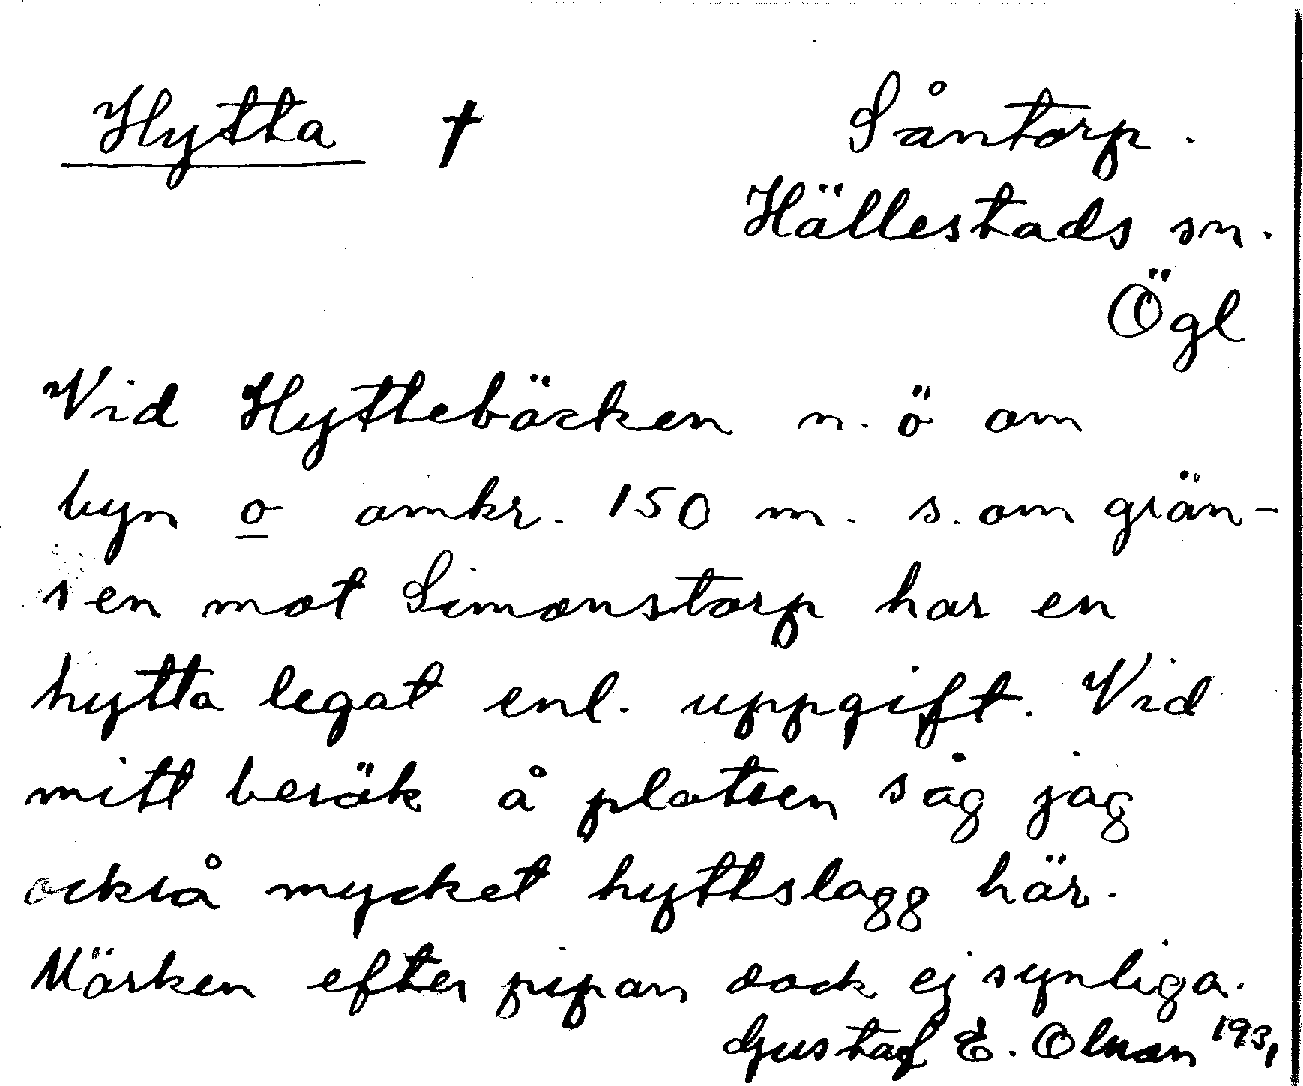 Hytta † Såntorp.
Hällestads sn.
Ögl
Vid Hyttebäcken n.ö om
byn o omkr. 150 m. s. om grän-
sen mot Simonstorp har en
hytta legat enl. uppgift. Vid
mitt besök å platsen såg jag
också mycket hyttslagg här.
Märken efter pipan dock ej synliga.
Gustaf E. Olson 1931